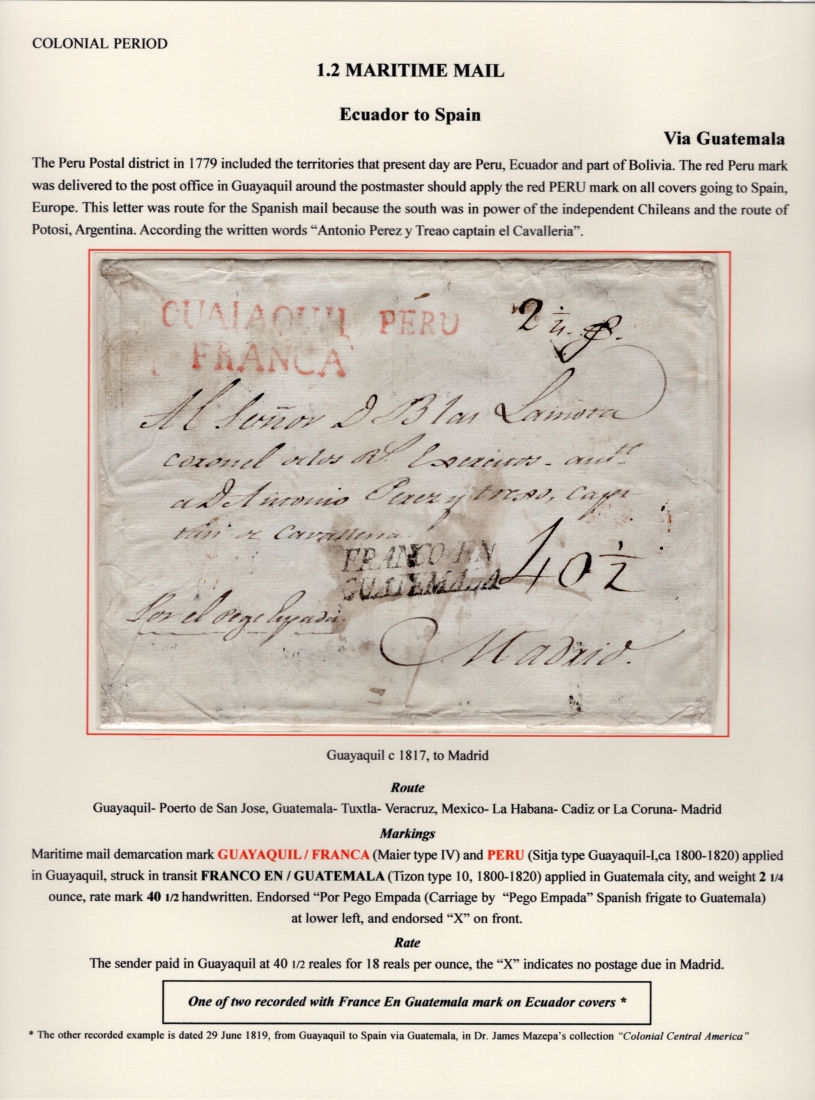 COLONIAL PERIOD
1.2 MARITIME MAIL
Ecuador to Spain
Via Guatemala
The Peru Postal district in 1779 included the territories that present day are Peru, Ecuador and part of Bolivia. The red Peru mark
was delivered to the post office in Guayaquil around the postmaster should apply the red PERU mark on all covers going to Spain,
Europe. This letter was route for the Spanish mail because the south was in power of the independent Chileans and the route of
Potosi, Argentina. According the written words “Antonio Perez y Treao captain el Cavalleria”.
GUAIAQUIL PERU 2 ¼
FRANCA
Al Señor D Blas Lamora
coronel Exercitos
a D Antonio Perez y
Cavalleria
FRANCO EN
GUATEMALA 40 ½
Por el
Madrid.
Guayaquil c 1817, to Madrid
Route
Guayaquil- Poerto de San Jose, Guatemala- Tuxtla- Veracruz, Mexico- La Habana- Cadiz or La Coruna- Madrid
Markings
Maritime mail demarcation mark GUAYAQUIL / FRANCA (Maier type IV) and PERU (Sitja type Guayaquil-I,ca 1800-1820) applied
in Guayaquil, struck in transit FRANCO EN / GUATEMALA (Tizon type 10, 1800-1820) applied in Guatemala city, and weight 2 1/4
ounce, rate mark 40 1/2 handwritten. Endorsed “Por Pego Empada (Carriage by “Pego Empada” Spanish frigate to Guatemala)
at lower left, and endorsed “X” on front.
Rate
The sender paid in Guayaquil at 40 1/2 reales for 18 reals per ounce, the “X” indicates no postage due in Madrid.
One of two recorded with France En Guatemala mark on Ecuador covers *
* The other recorded example is dated 29 June 1819, from Guayaquil to Spain via Guatemala, in Dr. James Mazepa's collection “Colonial Central America”